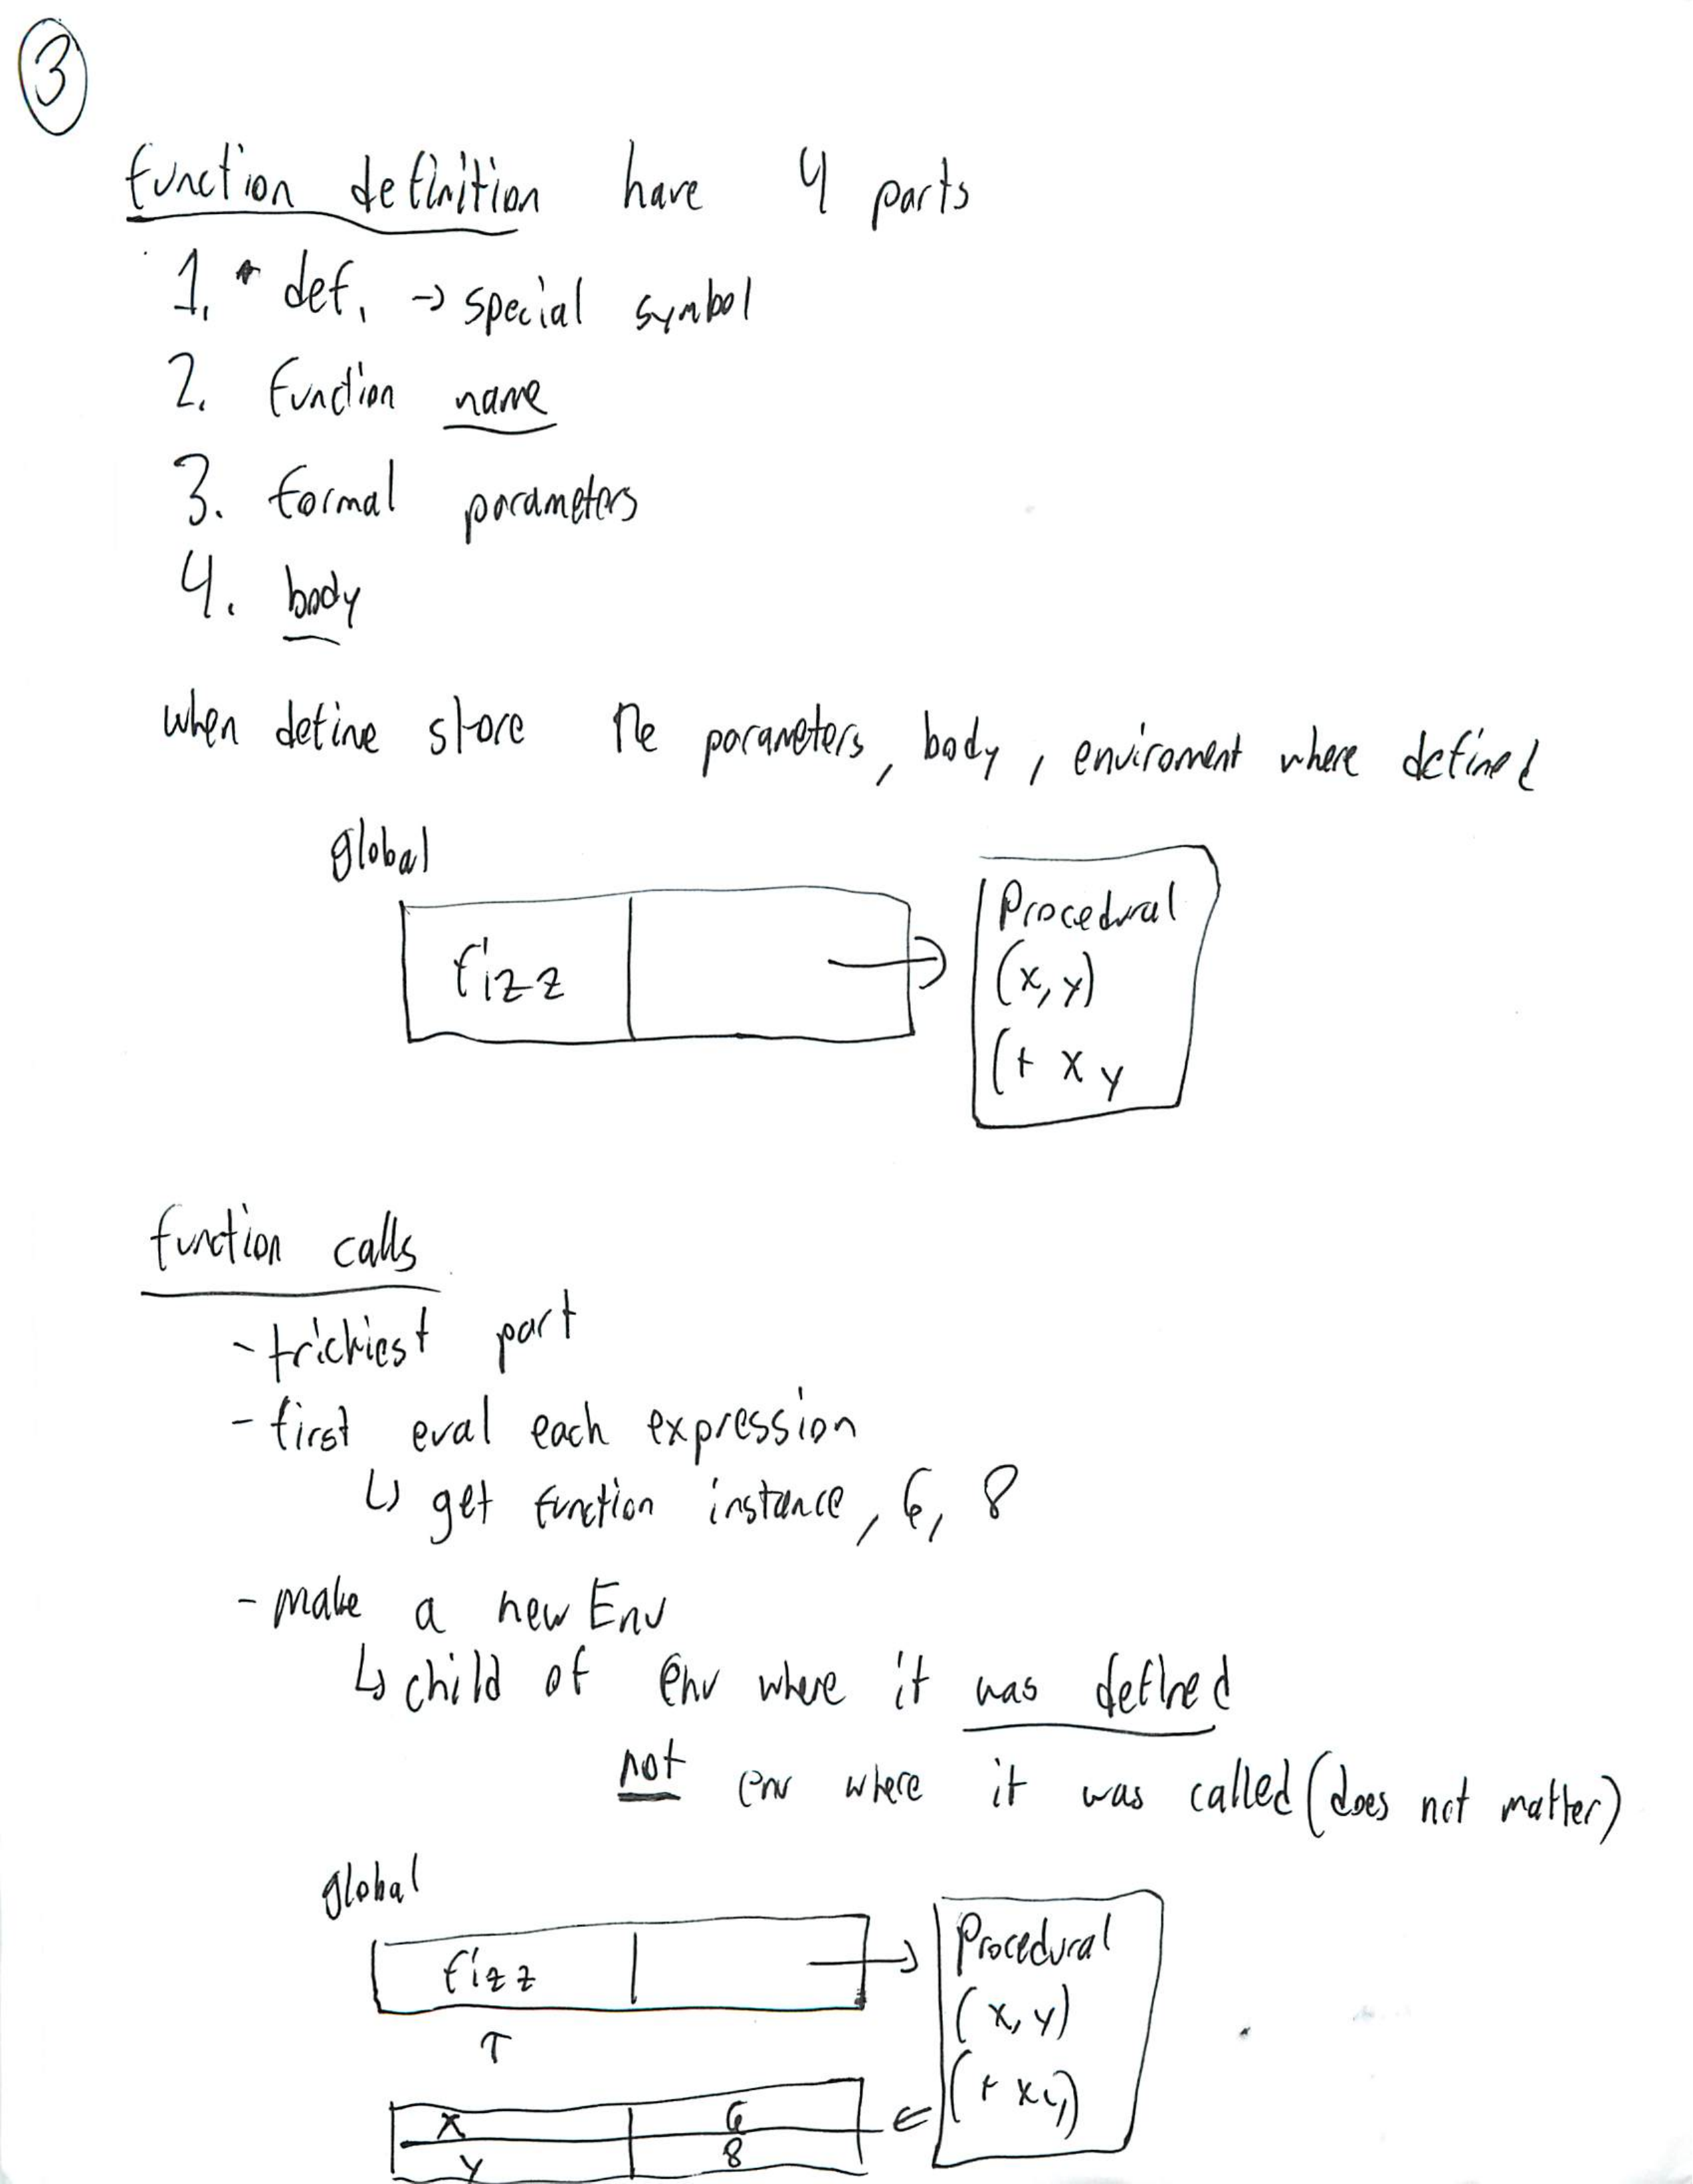 3
function definition have 4 parts
1. * def. -> special symbol
2. function name
3. formal parameters
4. body
when define store the parameters, body, enviroment where defined
global
fizz
Procedural
(x, y)
(+ x y
function calls
- trickiest part
- first eval each expression
↳ get function instance, 6, 8
- make a new Env
↳ child of env where it was defined
not env where it was called (does not matter)
global
fizz
Procedural
(x, y)
(+ x y)
x 6
y 8